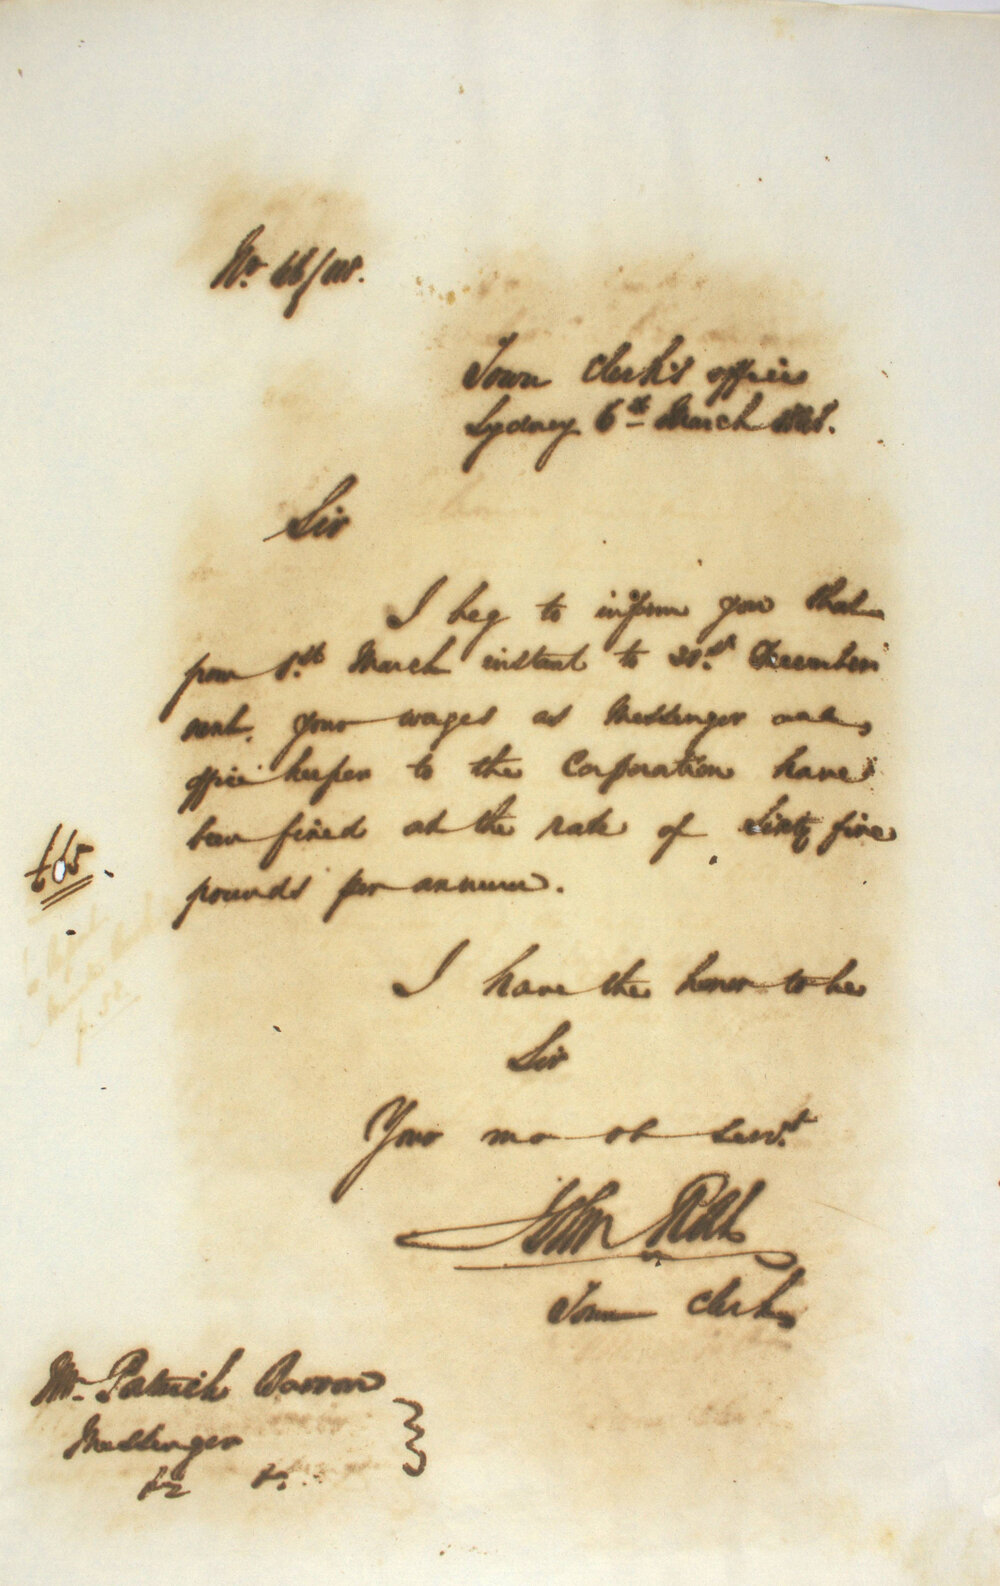 No. 66/48.
Town Clerk's office
Sydney 6th March 1848.
Sir
I beg to inform you that
from 1st March instant to 31st December
next, your wages as Messenger and
office keeper to the Corporation have
been fixed at the rate of Sixty five
pounds per annum.
£65.
I have the honor to be
Sir
Your mo ob Servt
John Rae
Town Clerk
Mr. Patrick Barron
Messenger
&c &c.